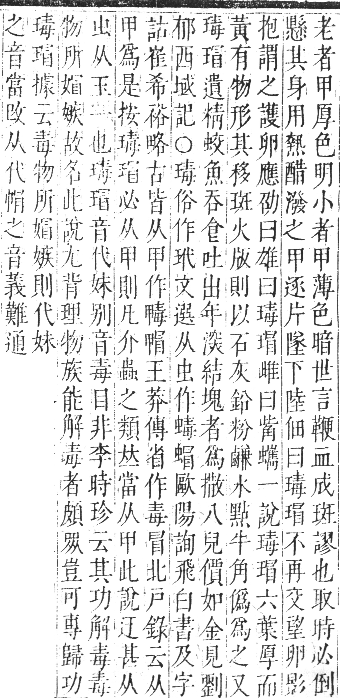 老者甲厚色明小者甲薄色暗世言鞭血成斑謬也取時必倒
懸其身用熱醋潑之甲逐片墜下陸佃曰瑇瑁不再交望卵影
抱謂之護卵應劭曰雄曰瑇瑁雌曰觜蠵一說瑇瑁六葉厚而
黃有物形其移斑火版則以石灰鉛粉鹻水點牛角僞爲之又
瑇瑁遺精蛟魚吞食吐出年深結塊者爲撒八兒價如金見劉
郁西域記○瑇俗作玳文選从虫作蝳蝐歐陽詢飛白書及字
詁崔希裕略古皆从甲作𤲵𤲰王莽傳省作毒冒北戶錄云从
甲爲是按瑇瑁必从甲則凡介蟲之類𠀤當从甲此說迂甚从
虫从玉一也瑇瑁音代妹别音毒目非李時珍云其功解毒毒
物所媢嫉故名此說尤背理物族能解毒者頗眾豈可專歸功
瑇瑁據云毒物所媢嫉則代妹
之音當改从代帽之音義難通